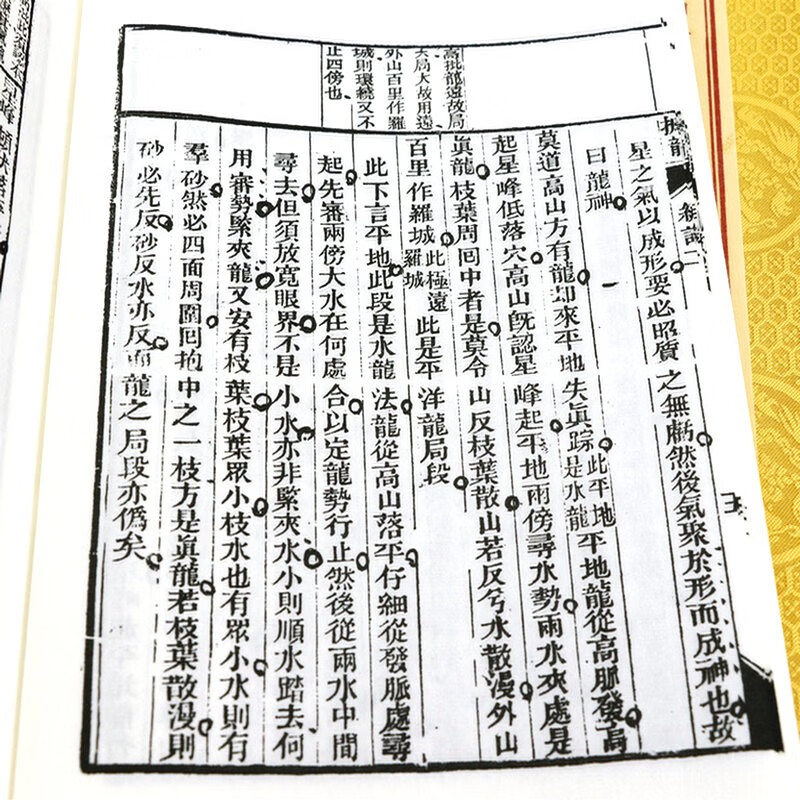 高批龍遠故局
去局大故用遠
外山百里作羅
城則環繞又不
止四傍也
星之氣以成形要必昭質之無虧然後氣聚於形而成神也故
曰龍神
莫道高山方有龍却來平地失眞蹤此平地是水龍平地龍從高脈發高
起星峰低落穴高山旣認星峰起平地兩傍尋水勢兩水夾處是
眞龍枝葉周囘中者是莫令山反枝葉散山若反兮水散漫外山
百里作羅城此極遠羅城此是平洋龍局段
此下言平地此段是水龍法龍從高山落平仔細從發脈處尋
起先審兩傍大水在何處合以定龍勢行止然後從兩水中間
尋去但須放寬眼界不是小水亦非緊夾水小則順水踏去何
用審勢緊夾龍又安有枝葉枝葉眾小枝水也有眾小水則有
羣砂然必四面周圍囘抱中之一枝方是眞龍若枝葉散漫則
砂必先反砂反水亦反而龍之局段亦僞矣